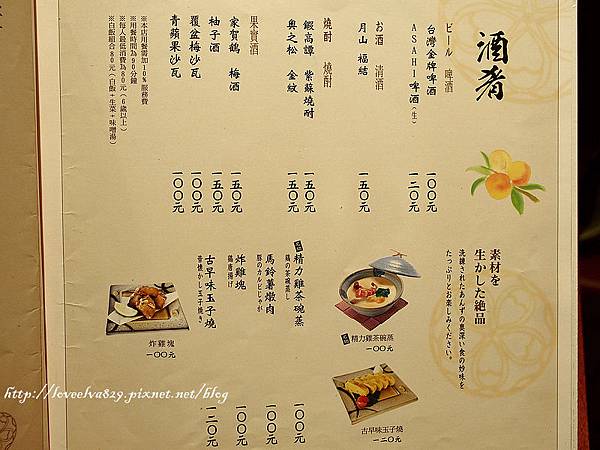 酒肴
ビール 啤酒
台灣金牌啤酒 一〇〇元
ASAHI啤酒(生) 一二〇元
お酒 清酒
月山 福結 一五〇元
燒酎 燒酎
鍜高譚 紫蘇燒酎 一五〇元
奥之松 金紋 一五〇元
果實酒
家賀鶴 梅酒 一五〇元
柚子酒 一五〇元
覆盆梅沙瓦 一〇〇元
青蘋果沙瓦 一〇〇元
※本店用餐需加10%服務費
※用餐時間為90分鐘
※每人最低消費為80元(6歲以上)
※白飯組合80元(白飯+生菜+味噌湯)
素材を
生かした絶品
洗練されたあんずの奥深い食の妙味を
たっぷりとお楽しみください。
精力雞茶碗蒸 一〇〇元
鶏の茶碗蒸し
馬鈴薯燉肉 一〇〇元
豚のカルビじゃが
炸雞塊 一〇〇元
鶏唐揚げ
古早味玉子燒 一二〇元
昔懐かし玉子焼き
精力雞茶碗蒸
一〇〇元
炸雞塊
一〇〇元
古早味玉子燒
一二〇元
http://loveelva829.pixnet.net/blog